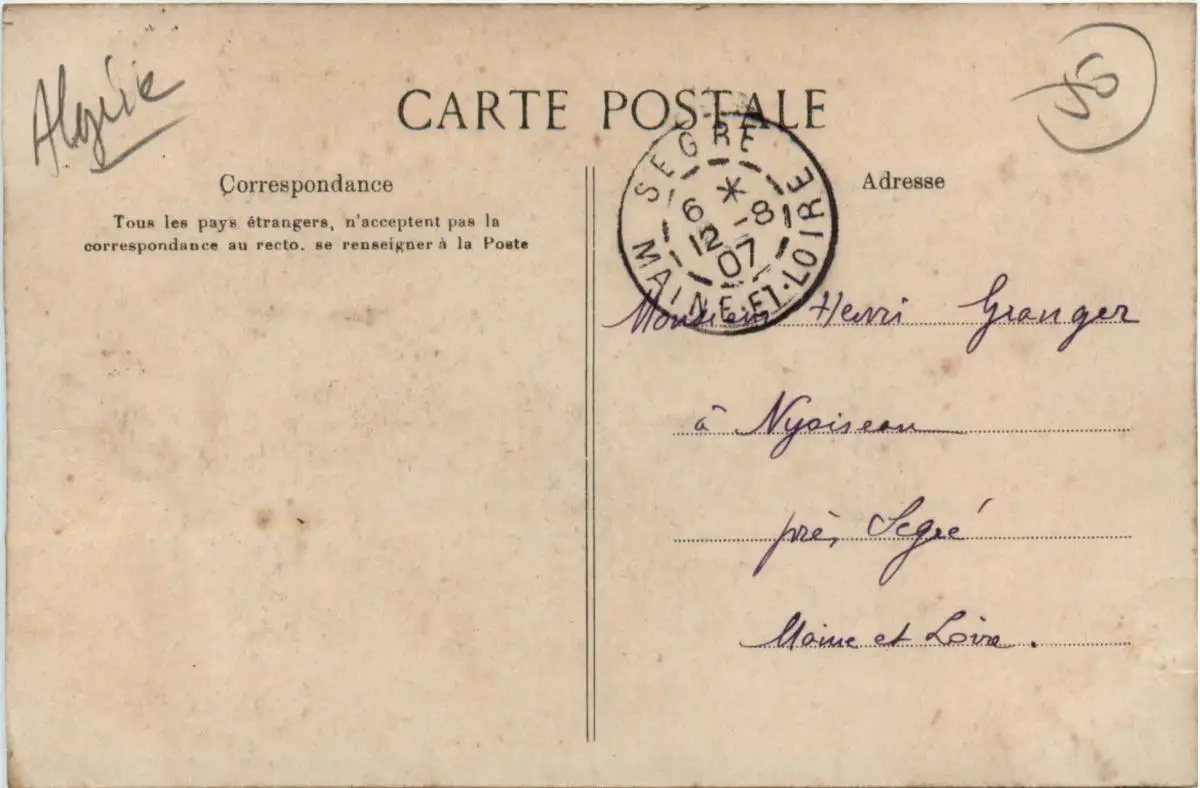 Algérie
CARTE POSTALE
Correspondance
Tous les pays étrangers, n'acceptent pas la
correspondance au recto. se renseigner à la Poste
SEGRE
6 * 
12 -8
07
MAINE-ET-LOIRE
Adresse
Monsieur Henri Granger
à Nyoiseau
près Segré
Maine et Loire.